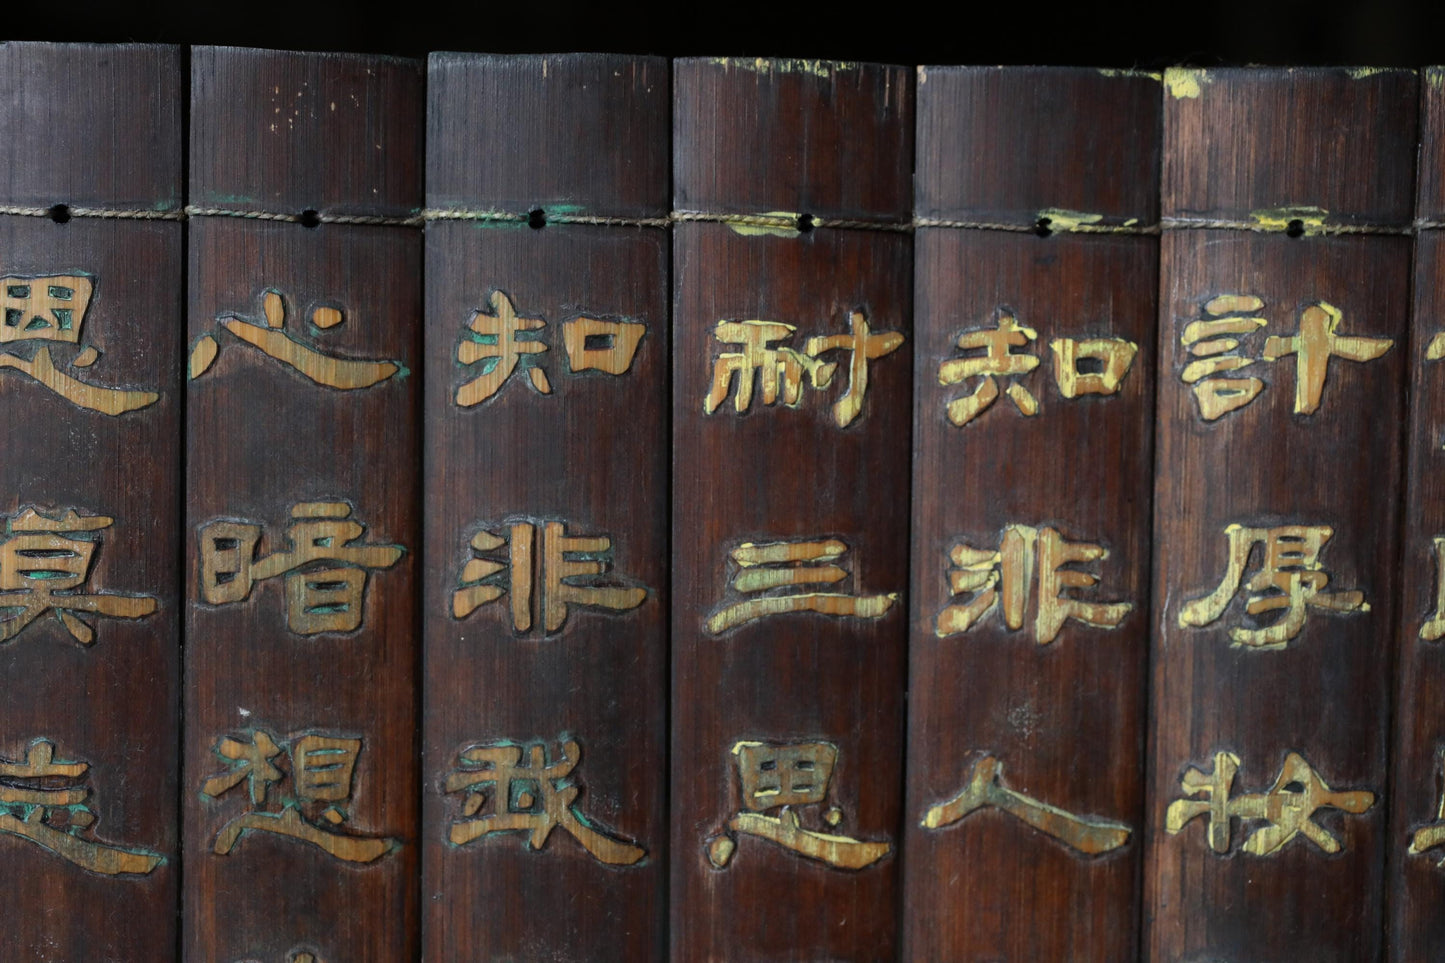 計厚妝
知非人
耐三思
知非我
心暗想
恩莫忘